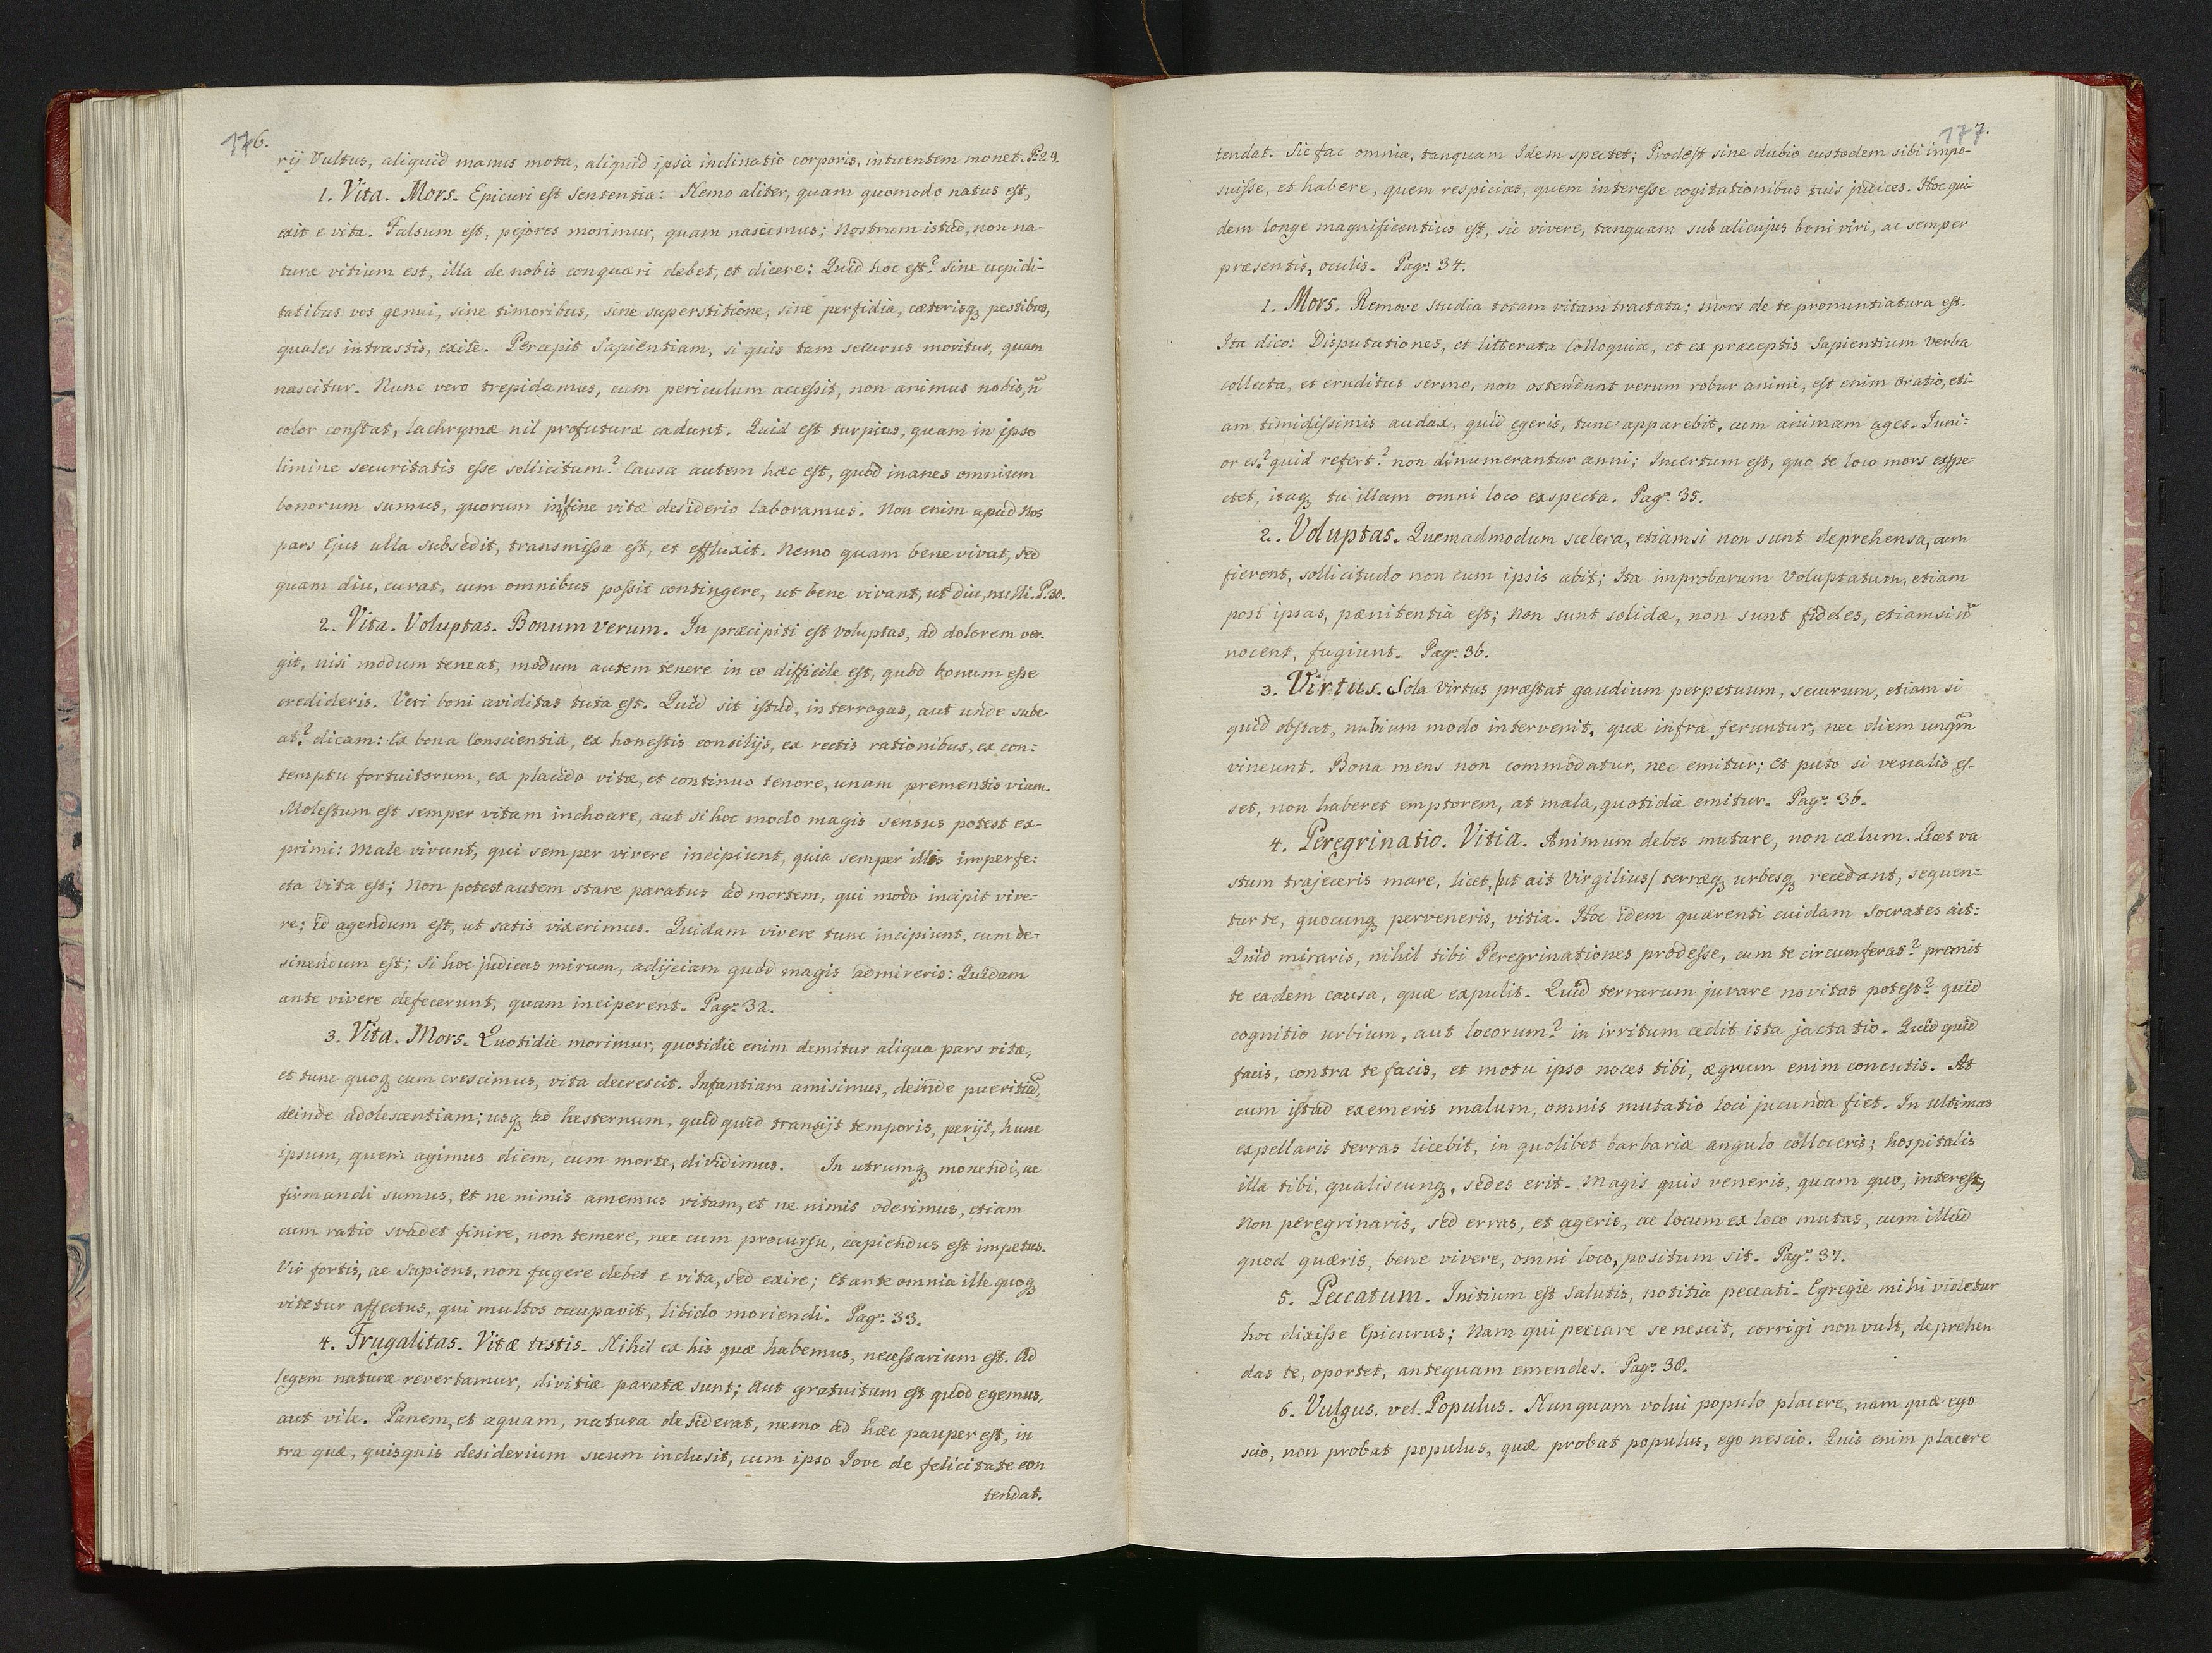 176.
rij Vultus, aliquid manus mota, aliquid ipsa inclinatio corporis, intuentem monet. P. 29.
1. Vita. Mors. Epicuri est sententia: Nemo aliter, quam quomodo natus est,
exit e vita. Falsum est, pejores morimur, quam nascimus; Nostrum istud, non na-
turæ vitium est, illa de nobis conquæri debet, et dicere: Quid hoc est? sine cupidi-
tatibus vos genui, sine timoribus, sine superstitione, sine perfidia, cæterisq pestibus,
quales intrastis, exite. Percepit Sapientiam, si quis tam securus moritur, quam
nascitur. Nunc vero trepidamus, cum periculum accessit, non animus nobis, n̄
color constat, lachrymæ nil profuturæ cadunt. Quid est turpius, quam in ipso
limine securitatis esse sollicitum? Causa autem hæc est, quod inanes omnium
bonorum sumus, quorum in fine vitæ desiderio laboramus. Non enim apud Nos
pars Ejus ulla subsedit, transmissa est, et effluxit. Nemo quam bene vivat, sed
quam diu, curat, cum omnibus possit contingere, ut bene vivant, ut diu, nulli. P. 30.
2. Vita. Voluptas. Bonum verum. In præcipiti est voluptas, ad dolorem ver-
git, nisi modum teneat, modum autem tenere in eo difficile est, quod bonum esse
credideris. Veri boni aviditas tuta est. Quid sit istud, interrogas, aut unde sube-
at? dicam: Ex bona Conscientia, ex honestis consilijs, ex rectis rationibus, ex con:
temptu fortuitorum, ex placido vitæ, et continuo tenore, unam prementis viam.
Molestum est semper vitam inchoare, aut si hoc modo magis sensus potest ex-
primi: Male vivunt, qui semper vivere incipiunt, quia semper illis imperfe:
cta vita est; Non potest autem stare paratus ad mortem, qui modo incipit vive-
re; id agendum est, ut satis vixerimus. Quidam vivere tunc incipiunt, cum de-
sinendum est; Si hoc judicas mirum, adijciam quod magis admireris: Quidam
ante vivere defecerunt, quam inciperent. Pag: 32.
3. Vita. Mors. Quotidie morimur, quotidie enim demitur aliqua pars vitæ,
et tunc quoq cum crescimus, vita decrescit. Infantiam amisimus, deinde pueritiā,
deinde adolescentiam; usq ad hesternum, quidquid transijt temporis, perijt, hunc
ipsum, quem agimus diem, cum morte, dividimus. In utrumq monendi, ac
firmandi sumus, Et ne nimis amemus vitam, et ne nimis oderimus, etiam
cum ratio svadet finire, non temere, nec cum procursu, capiendus est impetus.
Vir fortis, ac Sapiens, non fugere debet e vita, sed exire; Et ante omnia ille quoq
vitetur affectus, qui multos occupavit, libido moriendi. Pag: 33.
4. Frugalitas. Vitæ testis. Nihil ex his quæ habemus, necessarium est. Ad
legem naturæ revertamur, divitiæ paratæ sunt; Aut gratuitum est quod egemus,
aut vile. Panem, et aquam, natura desiderat, nemo ad hæc pauper est, in
tra quæ, quisquis desiderium suum inclusit, cum ipso Iove de felicitate con
tendat.
177.
tendat. Sic fac omnia, tanquam Idem spectet; Prodest sine dubio custodem sibi impo-
suisse, et habere, quem respicias, quem interesse cogitationibus tuis judices. Hoc qui:
dem longe magnificentius est, sic vivere, tanquam sub alicujus boni viri, ac semper
præsentis, oculis. Pag: 34.
1. Mors. Remove studia totam vitam tractata; mors de te pronuntiatura est.
Ita dico: Disputationes, et litterata Colloquia, et ex præceptis Sapientium verba
collecta, et eruditus sermo, non ostendunt verum robur animi, est enim Oratio, eti-
am timidissimis audax, quid egeris, tunc apparebit, cum animam ages. Iuni:
or es? quid refert? non dinumerantur anni; Incertum est, quo te loco mors exspe-
ctet, itaq tu illam omni loco exspecta. Pag: 35.
2. Voluptas. Quemadmodum scelera, etiamsi non sunt deprehensa, cum
fierent, sollicitudo non cum ipsis abit; Ita improbarum Voluptatum, etiam
post ipsas, pænitentia est; Non sunt solidæ, non sunt fideles, etiamsi n̄
nocent, fugiunt. Pag: 36.
3. Virtus. Sola Virtus præstat gaudium perpetuum, securum, etiam si
quid obstat, nubium modo intervenit, quæ infra feruntur, nec diem unqm̄
vincunt. Bona mens non commodatur, nec emitur; Et puto si venalis es-
set, non haberet emptorem, at mala, quotidie emitur. Pag: 36.
4. Peregrinatio. Vitia. Animum debes mutare, non cælum. Licet va
stum trajeceris mare, licet, /ut ait Virgilius/ terræq urbesq recedant, sequen:
tur te, quocunq perveneris, vitia. Hoc idem quærenti cuidam Socrates ait:
Quid miraris, nihil tibi Peregrinationes prodesse, cum te circumferas? premit
te eadem causa, quæ expulit. Quid terrarum juvare novitas potest? quid
cognitio urbium, aut locorum? in irritum cedit ista jactatio. Quid quid
facis, contra te facis, et motu ipso noces tibi, ægrum enim concutis. At
cum istud exemeris malum, omnis mutatio loci jucunda fiet. In ultimas
expellaris terras licebit, in quolibet barbariæ angulo colloceris; hospitalis
illa tibi, qualiscunq, sedes erit. Magis quis veneris, quam quo, interest,
Non peregrinaris, sed erras, et ageris, ac locum ex loco mutas, cum illud
quod quæris, bene vivere, omni loco, positum sit. Pag: 37.
5. Peccatum. Initium est Salutis, notitia peccati. Egregie mihi videtur
hoc dixisse Epicurus; Nam qui peccare se nescit, corrigi non vult, deprehen
das te, oportet, antequam emendes. Pag: 38.
6. Vulgus. vel. Populus. Nunquam volui populo placere, nam quæ ego
scio, non probat populus, quæ probat populus, ego nescio. Quis enim placere